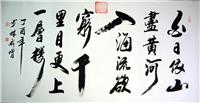 白日依山
盡黃河
入海流欲
窮千
里目更上
一層樓
丁酉年